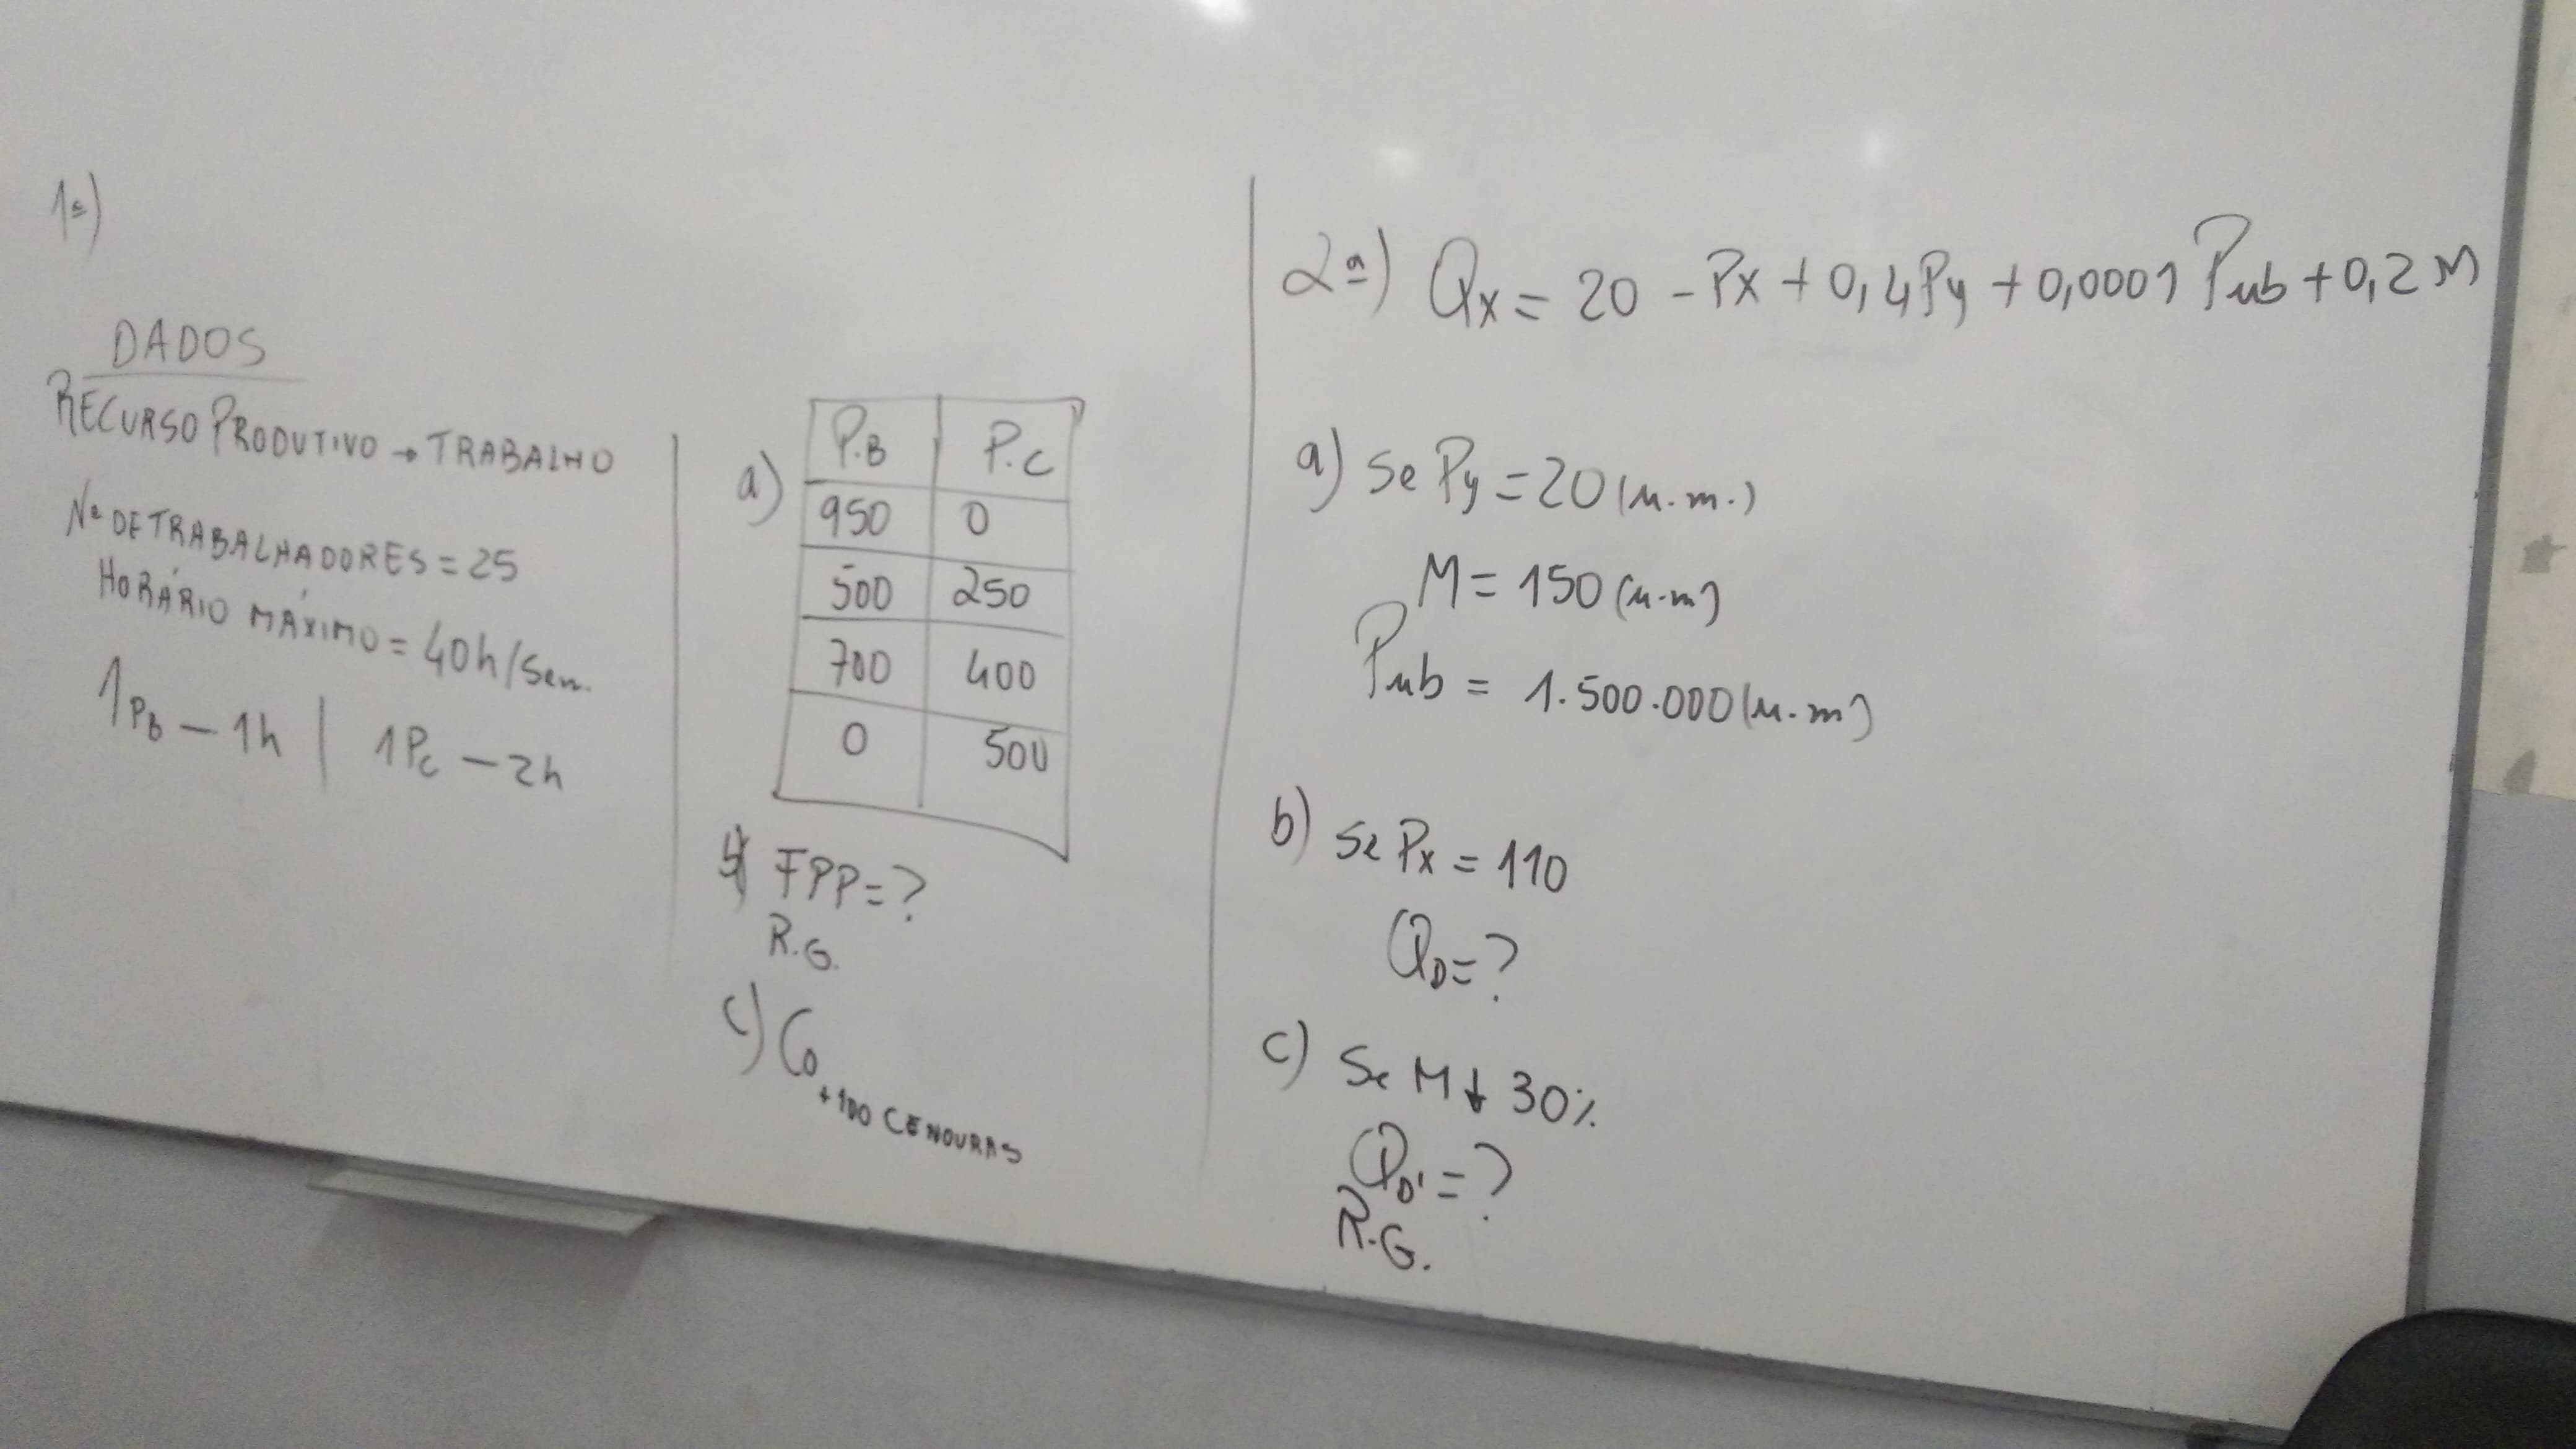 1ª)
DADOS
RECURSO PRODUTIVO → TRABALHO
Nº DE TRABALHADORES = 25
HORÁRIO MÁXIMO = 40h/Sem.
1PB – 1h | 1PC – 2h
a)
P.B | P.C
950 | 0
500 | 250
700 | 400
0 | 500
b) FPP = ?
R.G.
c) Co
+100 CENOURAS
2ª) Qx = 20 - Px + 0,4Py + 0,0001 Pub + 0,2 M
a) Se Py = 20 (u.m.)
M = 150 (u.m)
Pub = 1.500.000 (u.m)
b) Se Px = 110
QD = ?
c) Se M ↓ 30%
QD' = ?
R.G.